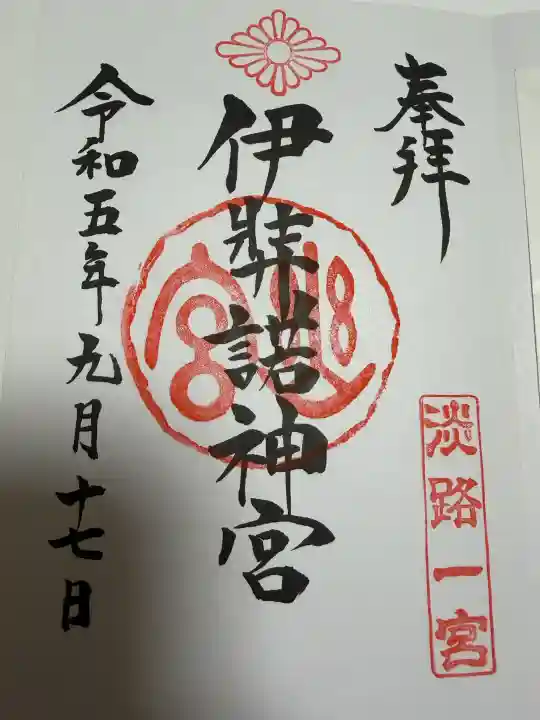 奉拝
淡路一宮
伊弉諾神宮
令和五年九月十七日